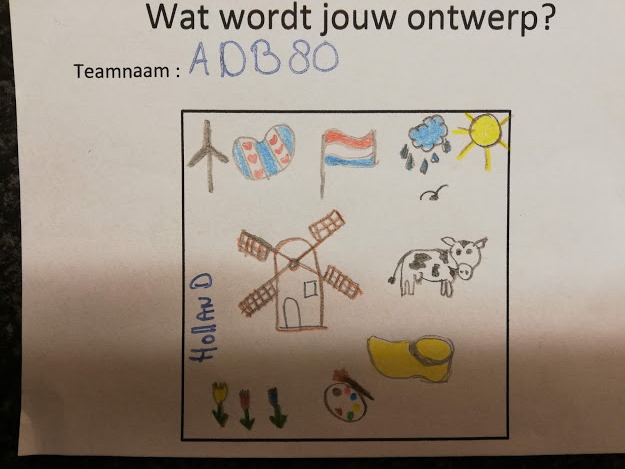 Wat wordt jouw ontwerp?
Teamnaam : ADB80
HOllAND